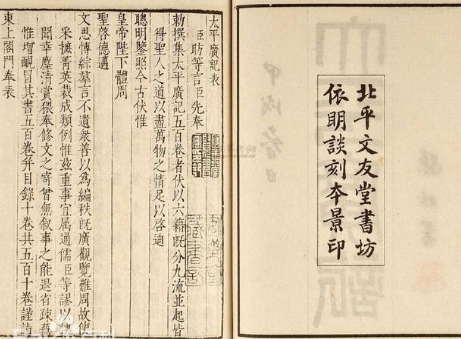 北平文友堂書坊
依明談刻本景印
太平廣記表
臣昉等言臣先奉
勅撰集太平廣記五百卷者伏以六籍旣分九流並起皆
得聖人之道以盡萬物之情足以啓迪
聰明鑒照今古伏惟
皇帝陛下體周
聖啓德邁
文思博綜羣言不遺衆善以爲編秩旣廣觀覽難周故使
采摭菁英裁成類例惟兹重事宜屬通儒臣等謬以
聞幸塵清賞猥奉修文之寄曾無叙事之能退省疎蕪
惟增靦冒其書五百卷并目錄十卷共五百十卷謹詣
東上閤門奉表